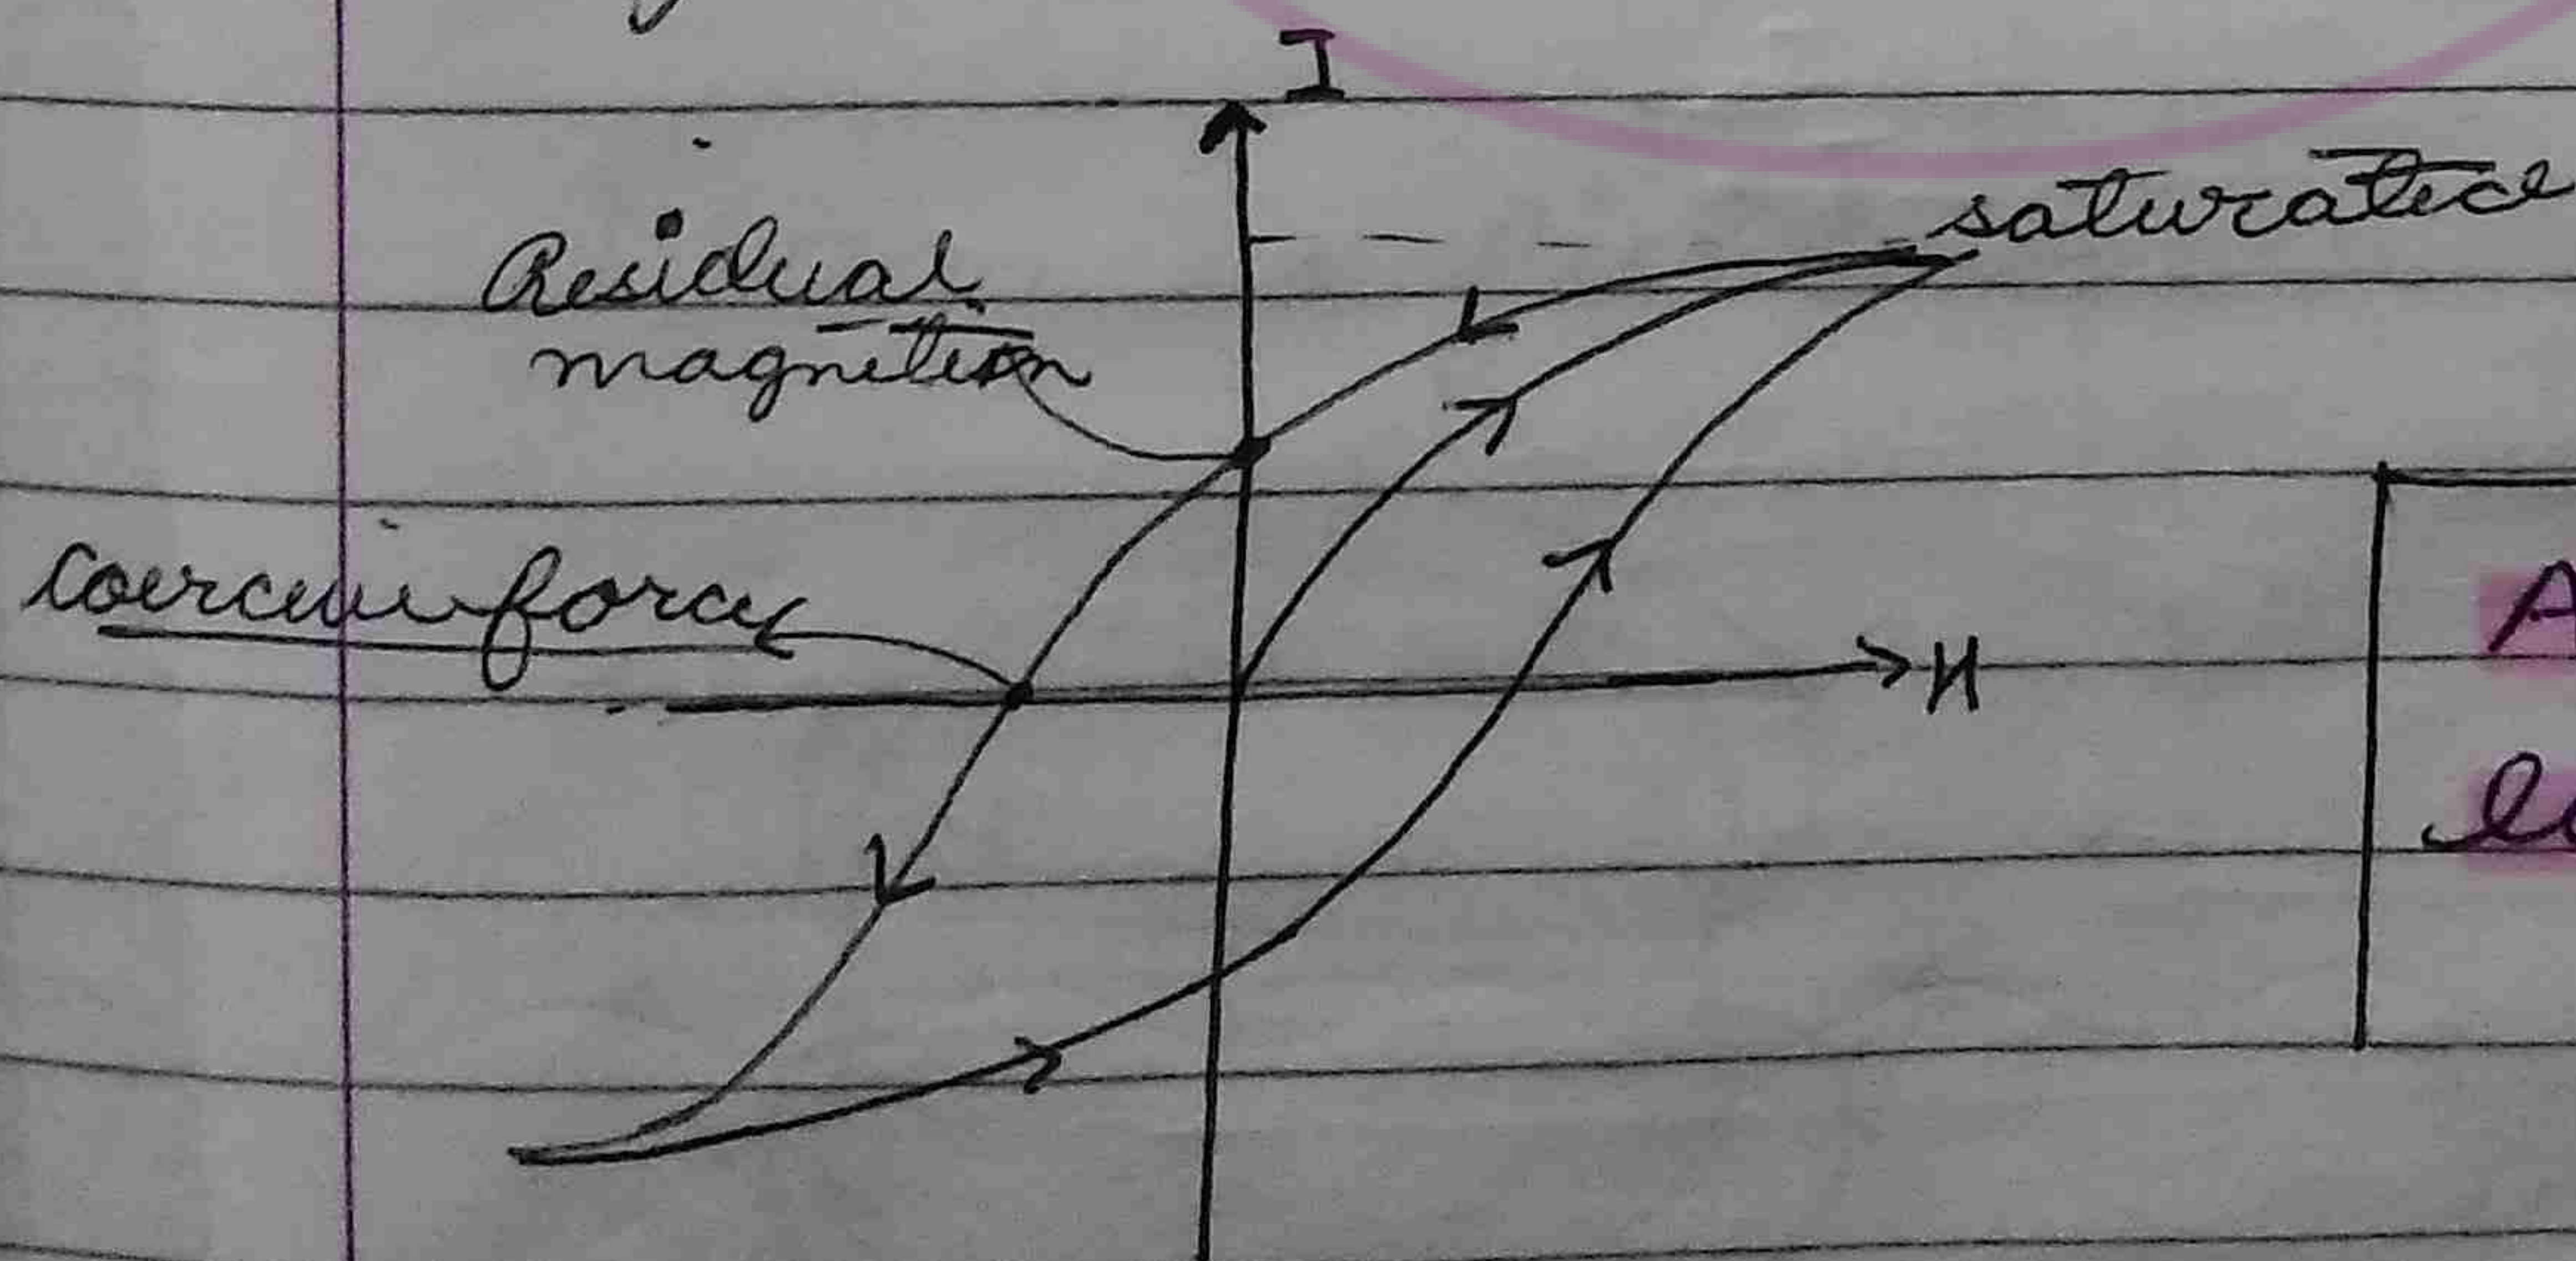 I
saturatice
Residual
magnetism
coercive force
H
A
le